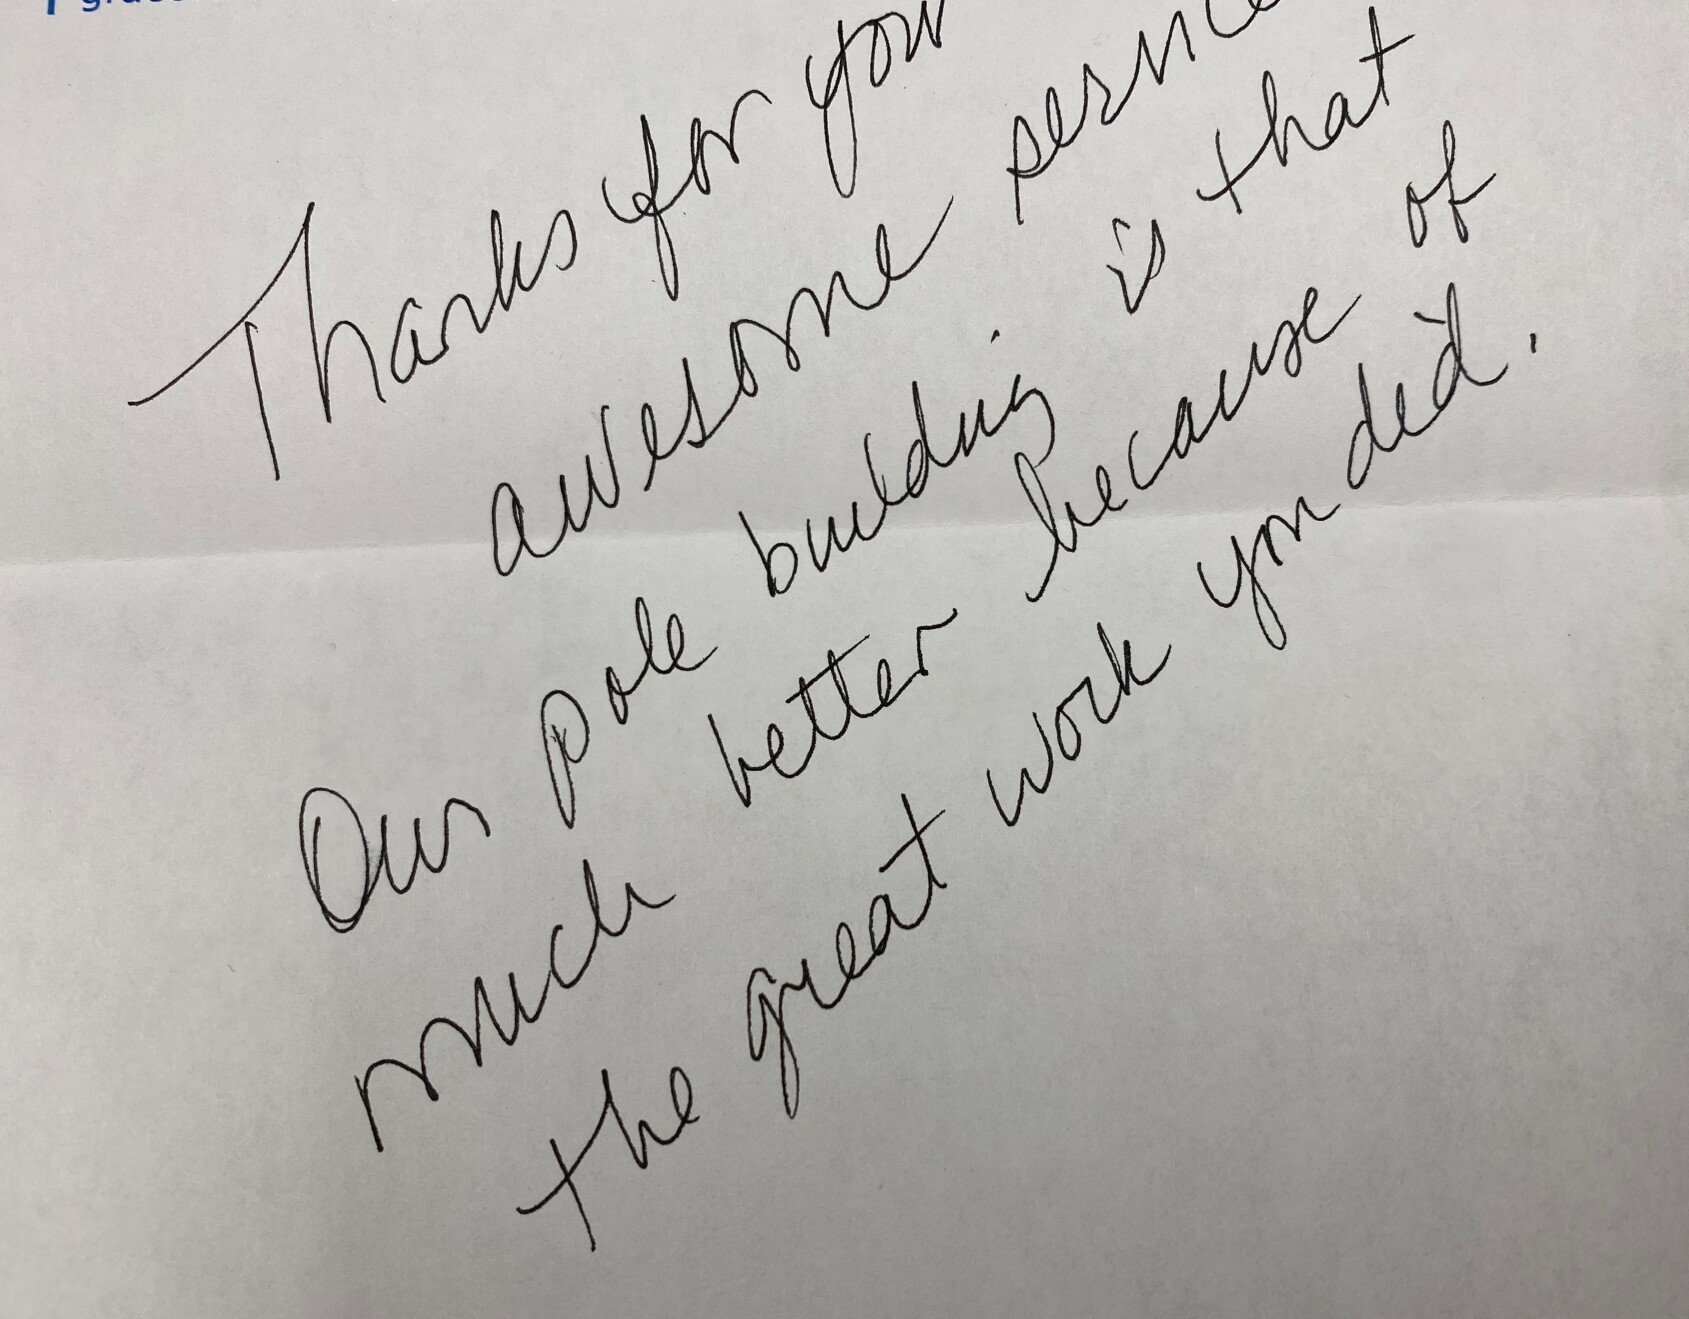 Thanks for your
awesome service
Our pole building is that
much better because of
the great work you did.